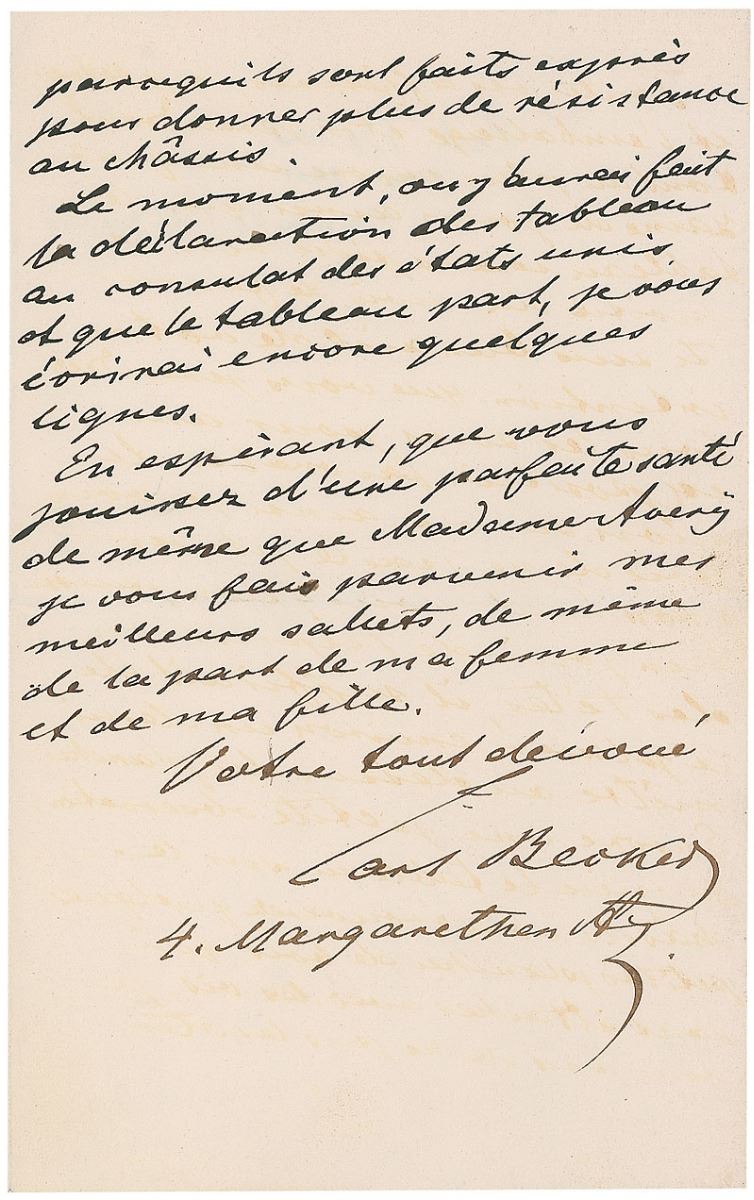 parcequ'ils sont faits exprès
pour donner plus de résistance
au châssis.
Le moment, ou j'aurai fait
la déclaration des tableau
au consulat des états unis
et que le tableau part, je vous
écrirai encore quelques
lignes.
En espérant, que vous
jouissez d'une parfaite santé
de même que Madame Avery
je vous fais parvenir mes
meilleurs saluts, de même
de la part de ma femme
et de ma fille.
Votre tout dévoué
Carl Becker
4. Margarethen